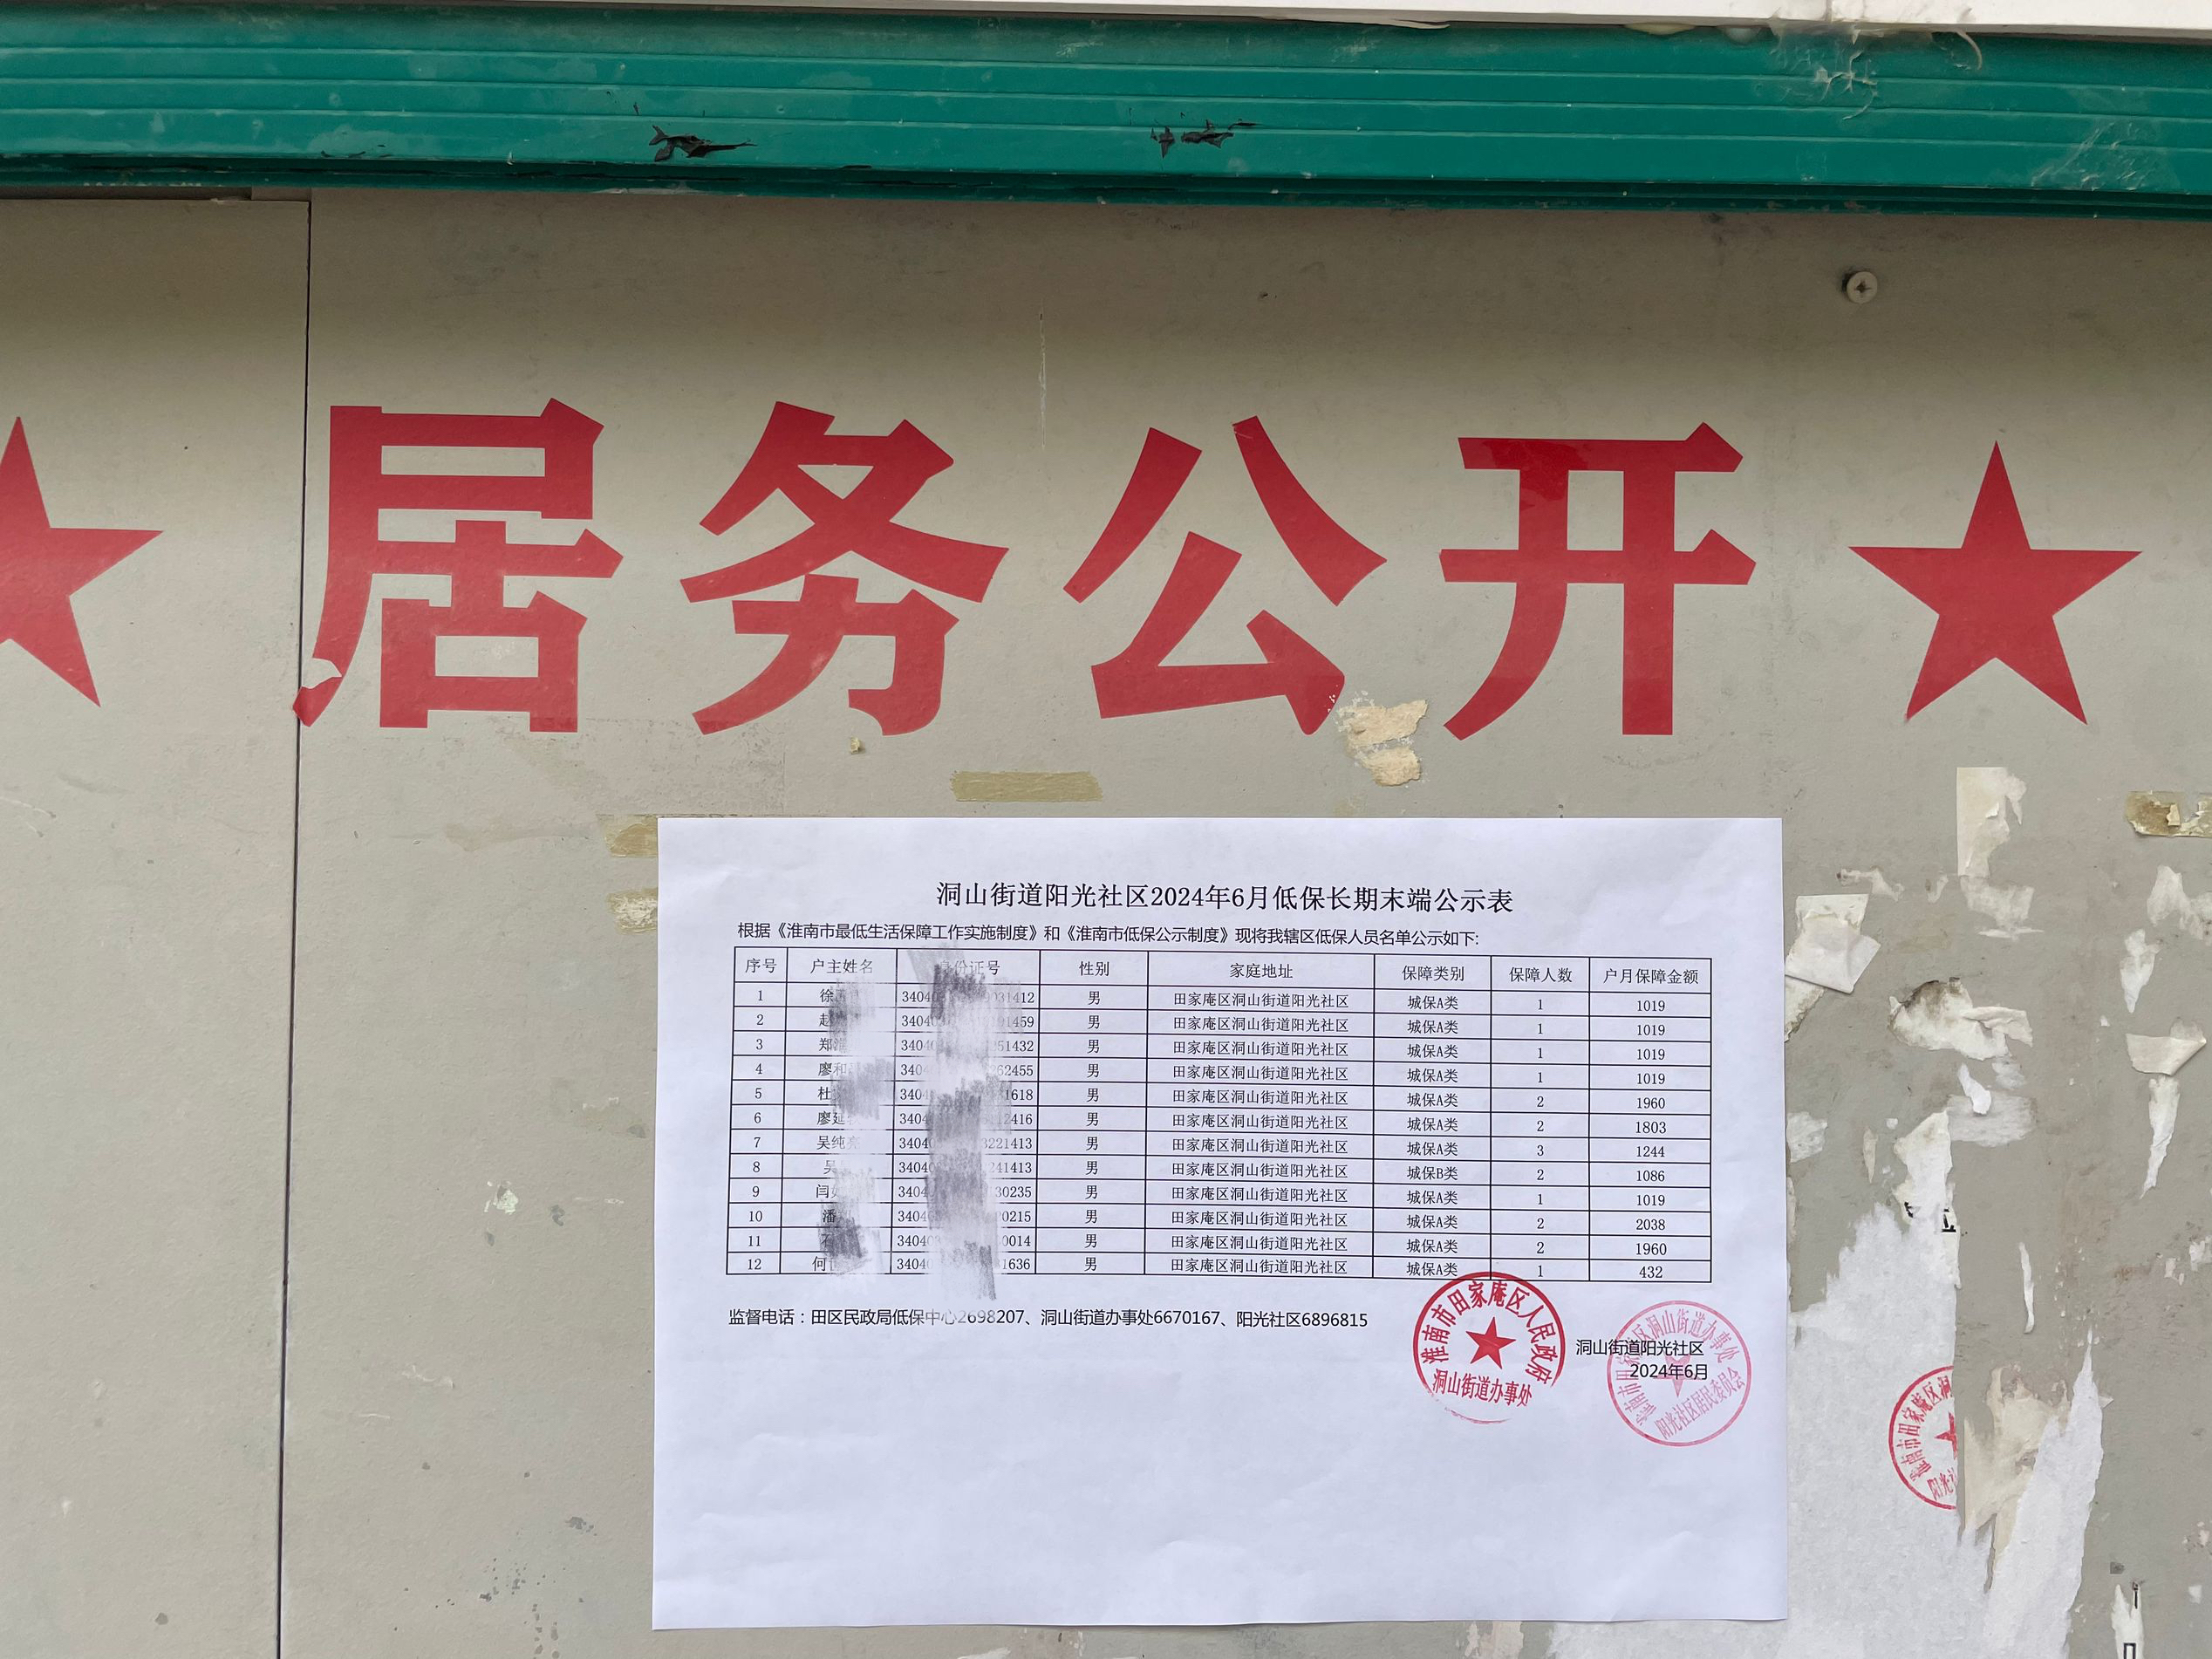 居务公开
洞山街道阳光社区2024年6月低保长期末端公示表
根据《淮南市最低生活保障工作实施制度》和《淮南市低保公示制度》现将我辖区低保人员名单公示如下:
序号 户主姓名 身份证号 性别 家庭地址 保障类别 保障人数 户月保障金额
1 徐 3404 031412 男 田家庵区洞山街道阳光社区 城保A类 1 1019
2 赵 3404 1459 男 田家庵区洞山街道阳光社区 城保A类 1 1019
3 郑 3404 51432 男 田家庵区洞山街道阳光社区 城保A类 1 1019
4 廖和 3404 62455 男 田家庵区洞山街道阳光社区 城保A类 1 1019
5 杜 3404 1618 男 田家庵区洞山街道阳光社区 城保A类 2 1960
6 廖延 3404 2416 男 田家庵区洞山街道阳光社区 城保A类 2 1803
7 吴纯 3404 221413 男 田家庵区洞山街道阳光社区 城保A类 3 1244
8 吴 3404 41413 男 田家庵区洞山街道阳光社区 城保B类 2 1086
9 闫 3404 30235 男 田家庵区洞山街道阳光社区 城保A类 1 1019
10 潘 3404 0215 男 田家庵区洞山街道阳光社区 城保A类 2 2038
11 石 3404 0014 男 田家庵区洞山街道阳光社区 城保A类 2 1960
12 何 3404 1636 男 田家庵区洞山街道阳光社区 城保A类 1 432
监督电话：田区民政局低保中心2698207、洞山街道办事处6670167、阳光社区6896815
淮南市田家庵区人民政府
洞山街道办事处
洞山街道阳光社区
2024年6月
淮南市田家庵区洞山街道办事处
阳光社区居民委员会
淮南市田家庵区洞
阳光社